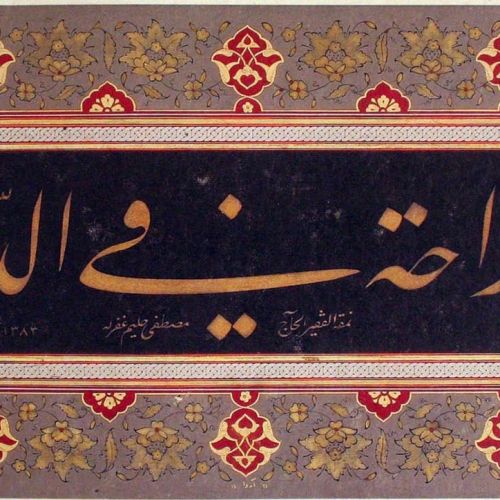 راحة في ال
نمقه الفقير الحاج مصطفى حليم غفرله ١٣٨٣